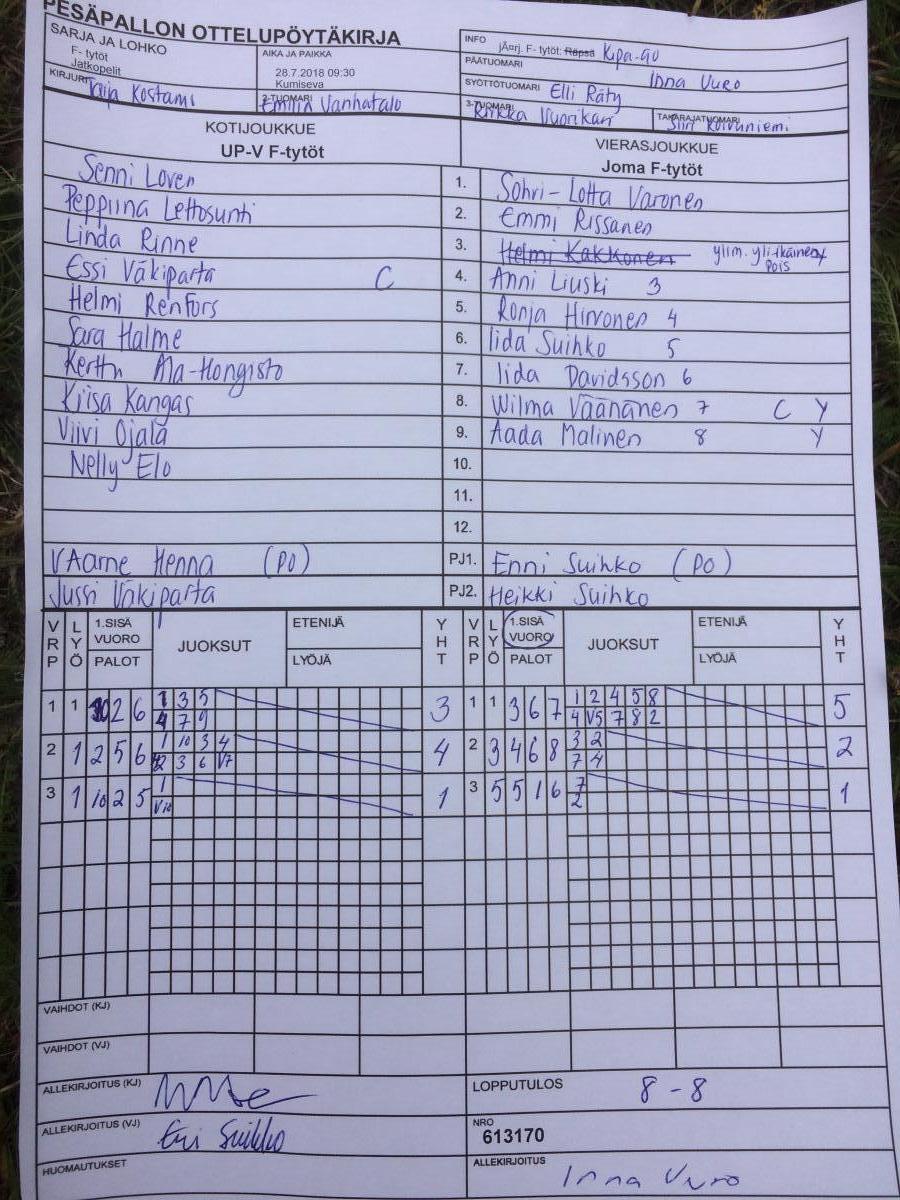 PESÄPALLON OTTELUPÖYTÄKIRJA
SARJA JA LOHKO
F- tytöt
Jatkopelit
AIKA JA PAIKKA
28.7.2018 09:30
Kumiseva
INFO
jÄorj. F- tytöt: Räpsä Kipa-Go
PÄÄTUOMARI Inna Vuro
KIRJURI Taija Kostamo
2-TUOMARI Emilia Vanhatalo
SYÖTTÖTUOMARI Elli Räty
3-TUOMARI Riikka Vuorikari
TAKARAJATUOMARI Siiri Koivuniemi
KOTIJOUKKUE
UP-V F-tytöt
VIERASJOUKKUE
Joma F-tytöt
Senni Loven 1. Sohvi-Lotta Varonen
Peppiina Lettosunti 2. Emmi Rissanen
Linda Rinne 3. Helmi Kakkonen ylim. yli-ikäinen pois
Essi Väkiparta C 4. Anni Liuski 3
Helmi Renfors 5. Ronja Hirvonen 4
Sara Halme 6. Iida Suihko 5
Kerttu Ala-Hongisto 7. Iida Davidsson 6
Kiisa Kangas 8. Wilma Väänänen 7 C Y
Viivi Ojala 9. Aada Malinen 8 Y
Nelly Elo 10.
11.
12.
VAarne Henna (PO) PJ1. Enni Suihko (PO)
Jussi Väkiparta PJ2. Heikki Suihko
VRP LYÖ 1.SISÄ VUORO PALOT JUOKSUT ETENIJÄ LYÖJÄ YHT VRP LYÖ 1.SISÄ VUORO PALOT JUOKSUT ETENIJÄ LYÖJÄ YHT
1 1 10 2 6 1 3 5 3 1 1 3 6 7 1 2 4 5 8 5
4 7 9 4 V5 7 8 2
2 1 2 5 6 1 10 3 4 4 2 3 4 6 8 3 2 2
2 3 6 V7 7 4
3 1 10 2 5 1 1 3 5 5 1 6 7 1
V10 2
VAIHDOT (KJ)
VAIHDOT (VJ)
ALLEKIRJOITUS (KJ)
LOPPUTULOS 8-8
ALLEKIRJOITUS (VJ) Eni Suihko
NRO
613170
HUOMAUTUKSET
ALLEKIRJOITUS Inna Vuro